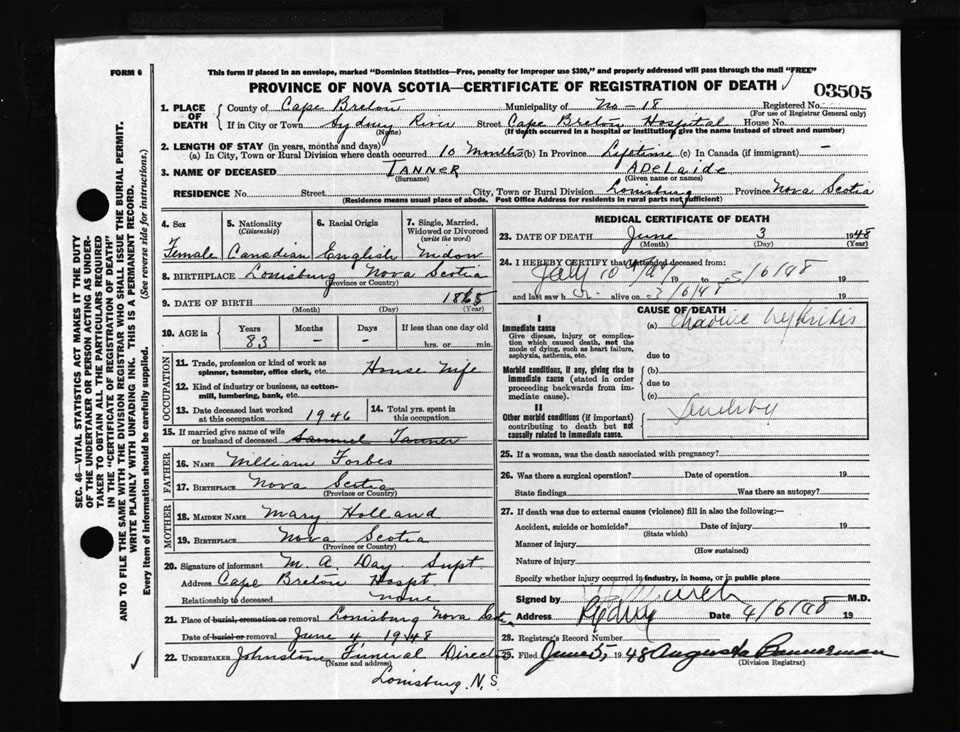 FORM 6
This form if placed in an envelope, marked "Dominion Statistics—Free, penalty for improper use $300," and properly addressed will pass through the mail "FREE"
PROVINCE OF NOVA SCOTIA—CERTIFICATE OF REGISTRATION OF DEATH
03505
1. PLACE OF DEATH County of Cape Breton Municipality of No-18 Registered No.
(For use of Registrar General only)
If in City or Town Sydney River Street Cape Breton Hospital House No.
(Name) (If death occurred in a hospital or institution, give the name instead of street and number)
2. LENGTH OF STAY (in years, months and days)
(a) In City, Town or Rural Division where death occurred 10 Months (b) In Province Lifetime (c) In Canada (if immigrant) —
3. NAME OF DECEASED TANNER ADELAIDE
(Surname) (Given name or names)
RESIDENCE No. Street City, Town or Rural Division Louisburg Province Nova Scotia
(Residence means usual place of abode. Post Office Address for residents in rural parts not sufficient)
4. Sex 5. Nationality 6. Racial Origin 7. Single, Married,
(Citizenship) Widowed or Divorced
(write the word)
Female Canadian English Widow
8. BIRTHPLACE Louisburg Nova Scotia
(Province or Country)
9. DATE OF BIRTH 1865
(Month) (Day) (Year)
10. AGE in Years Months Days If less than one day old
83 – – hrs. or min.
OCCUPATION
11. Trade, profession or kind of work as
spinner, teamster, office clerk, etc. House Wife
12. Kind of industry or business, as cotton-
mill, lumbering, bank, etc.
13. Date deceased last worked
at this occupation 1946
14. Total yrs. spent in
this occupation
15. If married give name of wife
or husband of deceased Samuel Tanner
FATHER
16. NAME William Forbes
17. BIRTHPLACE Nova Scotia
(Province or Country)
MOTHER
18. MAIDEN NAME Mary Holland
19. BIRTHPLACE Nova Scotia
(Province or Country)
20. Signature of informant M. A. Day Supt.
Address Cape Breton Hospt.
Relationship to deceased none
21. Place of burial, cremation or removal Louisburg Nova Scotia
Date of burial or removal June 4 1948
22. UNDERTAKER Johnstone Funeral Director
(Name and address)
Louisburg, N.S.
MEDICAL CERTIFICATE OF DEATH
23. DATE OF DEATH June 3 1948
(Month) (Day) (Year)
24. I HEREBY CERTIFY that I attended deceased from:
July 10 19 to 3/6/48 19
and last saw h alive on 3/6/48 19
CAUSE OF DEATH
I
Immediate cause
Give disease, injury or complica-
tion which caused death, not the
mode of dying, such as heart failure,
asphyxia, asthenia, etc.
(a) Chronic Nephritis
due to
Morbid conditions, if any, giving rise to
immediate cause (stated in order
proceeding backwards from im-
mediate cause).
(b)
due to
(c)
II
Other morbid conditions (if important)
contributing to death but not
causally related to immediate cause.
Senility
25. If a woman, was the death associated with pregnancy?
26. Was there a surgical operation? Date of operation 19
State findings Was there an autopsy?
27. If death was due to external causes (violence) fill in also the following:—
Accident, suicide or homicide? Date of injury 19
(State which)
Manner of injury
(How sustained)
Nature of injury
Specify whether injury occurred in industry, in home, or in public place
Signed by M.D.
Address Sydney Date 4/6/48 19
28. Registrar's Record Number
29. Filed June 5, 1948 Augusta Bannerman
(Division Registrar)
SEC. 46—VITAL STATISTICS ACT MAKES IT THE DUTY
OF THE UNDERTAKER OR PERSON ACTING AS UNDER-
TAKER TO OBTAIN ALL THE PARTICULARS REQUIRED
IN THE "CERTIFICATE OF REGISTRATION OF DEATH"
AND TO FILE THE SAME WITH THE DIVISION REGISTRAR WHO SHALL ISSUE THE BURIAL PERMIT.
WRITE PLAINLY WITH UNFADING INK. THIS IS A PERMANENT RECORD.
Every item of information should be carefully supplied. (See reverse side for instructions.)